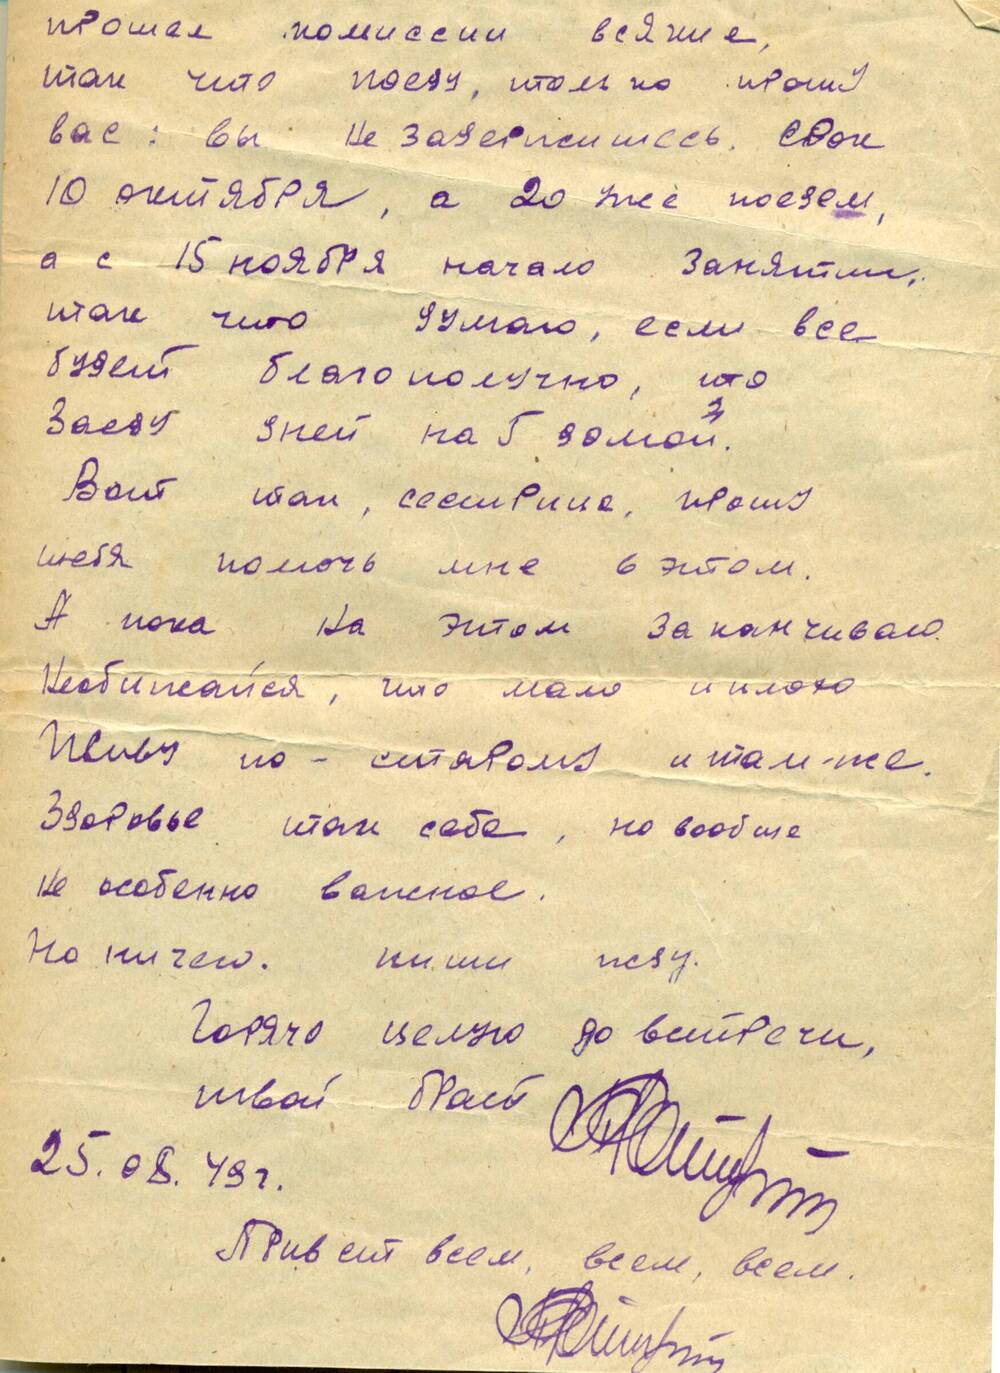 прошел комиссии всякие,
так что поеду, только прошу
вас: вы не задержитесь. Срок
10 октября, а 20 уже поедем,
а с 15 ноября начало занятии,
так что думаю, если все
будет благополучно, то
заеду дней на 5 домой.
Вот так, сестрица, прошу
тебя помочь мне в этом.
А пока на этом заканчиваю.
Необижайся, что мало и плохо
Живу по-старому и там-же.
Здоровье так себе, но вообще
не особенно важное.
Но ничего. пиши жду.
Горячо целую до встречи,
твой брат
25.08.49г.
Привет всем, всем, всем.